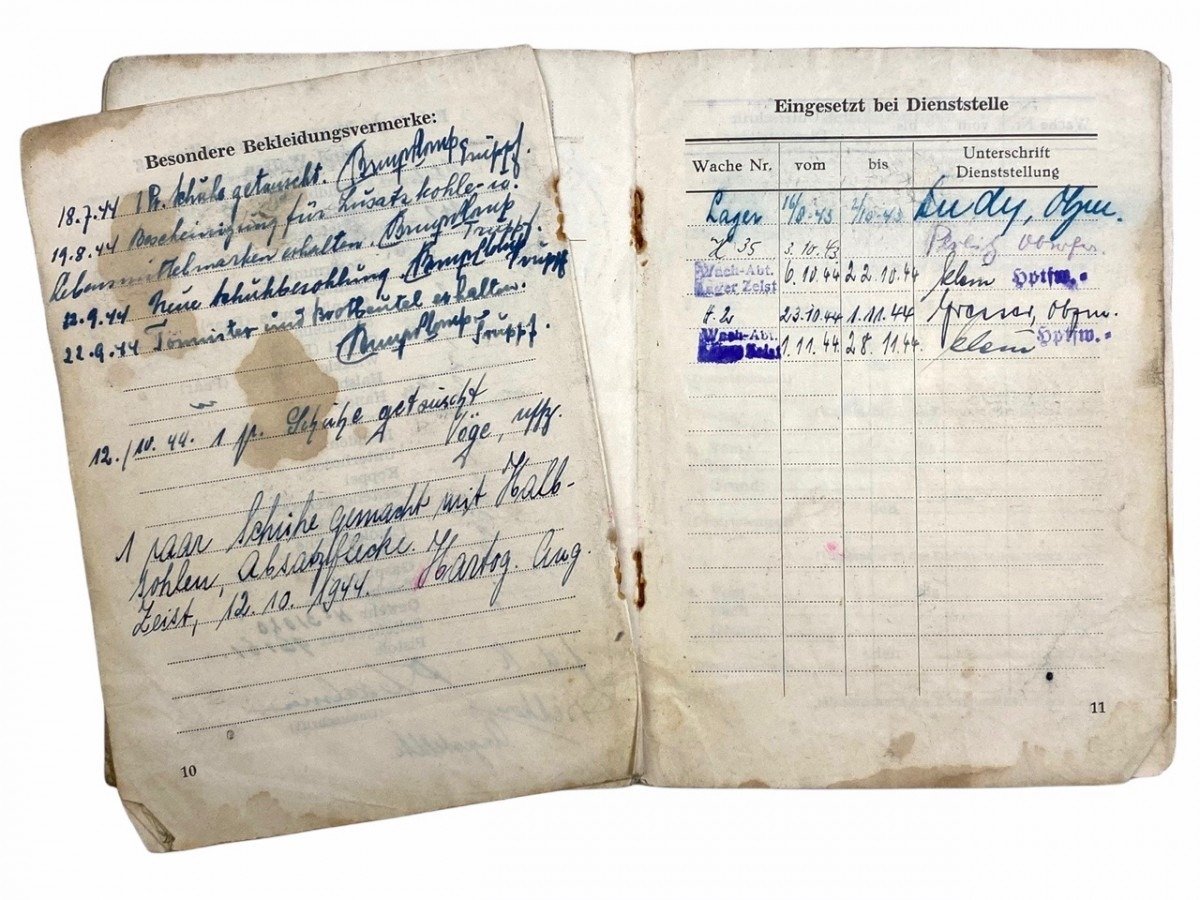 Besondere Bekleidungsvermerke:
18.7.44 1 Pr. Schuhe getauscht. Truppf.
19.8.44 Bescheinigung für Zusatzkohle u.
Lebensmittelmarken erhalten. Truppf.
12.9.44 Neue Schuhbesohlung. Truppf
22.9.44 Tornister und Brotbeutel erhalten.
Truppf.
12./10.44. 1 p. Schuhe getauscht
Vöge, uffz.
1 paar Schuhe gemacht mit Halb-
sohlen, Absatzflecke. Hartog. Aug.
Zeist, 12.10.1944.
10
Eingesetzt bei Dienststelle
Wache Nr. vom bis Unterschrift
Dienststellung
Lager 16/8.43 2/10.43 Obzm.
H 35 3.10.43
Wach-Abt. 6.10.44 22.10.44 Hptfw.
Lager Zeist
23.10.44 1.11.44 Obzm.
Wach-Abt. 1.11.44. 28.11.44. Hptfw.
Zeist
11